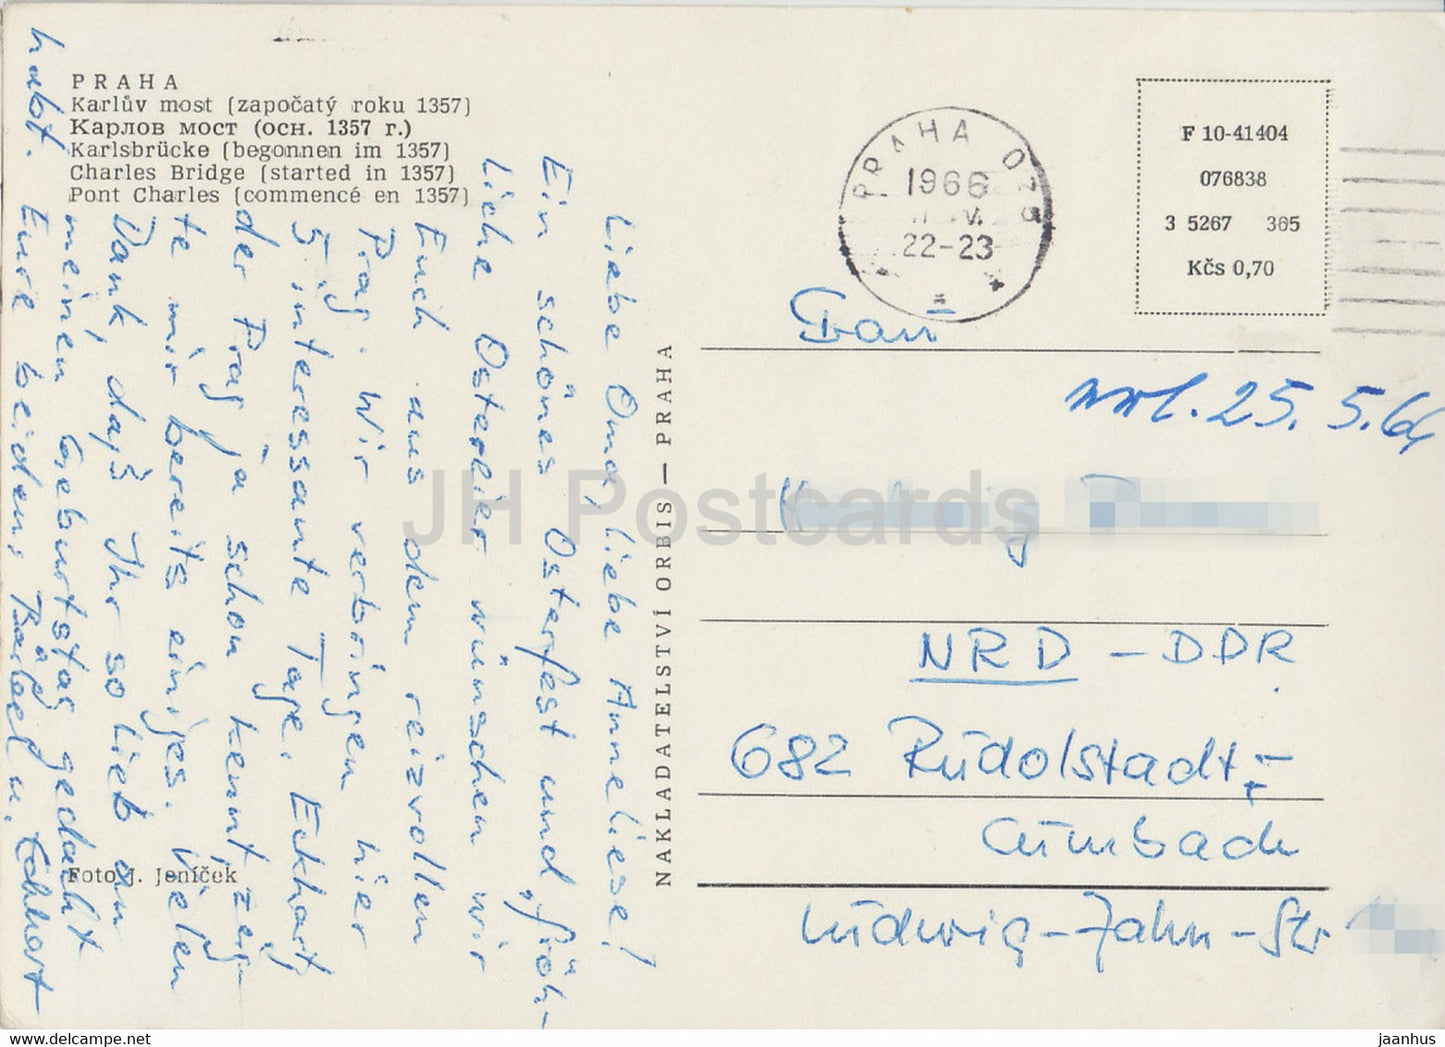 PRAHA
Karlův most (započatý roku 1357)
Карлов мост (осн. 1357 г.)
Karlsbrücke (begonnen im 1357)
Charles Bridge (started in 1357)
Pont Charles (commencé en 1357)
Liebe Oma, liebe Anneliese!
Ein schönes Osterfest und „fröh-
liche Ostereier wünschen wir
Euch aus dem reizvollen
Prag. Wir verbringen hier
5 interessante Tage. Eckhart,
der Prag ja schon kennt, zeig-
te mir bereits einiges. Vielen
Dank, daß Ihr so lieb an
meinen Geburtstag gedacht
habt.
Eure beiden, Bärbel u. Eckhart
Foto J. Jeníček
NAKLADATELSTVÍ ORBIS — PRAHA
PRAHA 025
1966
22-23
F 10-41404
076838
3 5267 365
Kčs 0,70
Frau
25.5.64
NRD - DDR
682 Rudolstadt-
Cumbach
Ludwig-Jahn-Str
JH Postcards
www.delcampe.net
jaanhus